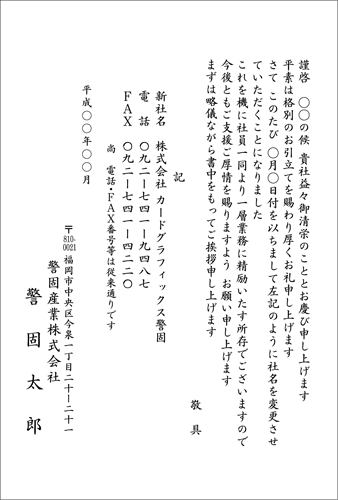 謹啓 〇〇の候 貴社益々御清栄のこととお慶び申し上げます
平素は格別のお引立てを賜わり厚くお礼申し上げます
さて このたび 〇月〇日付を以ちまして左記のように社名を変更させ
ていただくことになりました
これを機に社員一同より一層業務に精励いたす所存でございますので
今後ともご支援ご厚情を賜りますよう お願い申し上げます
まずは略儀ながら書中をもってご挨拶申し上げます
敬具
記
新社名 株式会社 カードグラフィックス警固
電話 〇九二ー七四一ー九四八七
FAX 〇九二ー七四一ー四二二〇
尚 電話・FAX番号等は従来通りです
平成〇〇年〇〇月
〒810-0021 福岡市中央区今泉一丁目二十ー二十一
警固産業株式会社
警固太郎